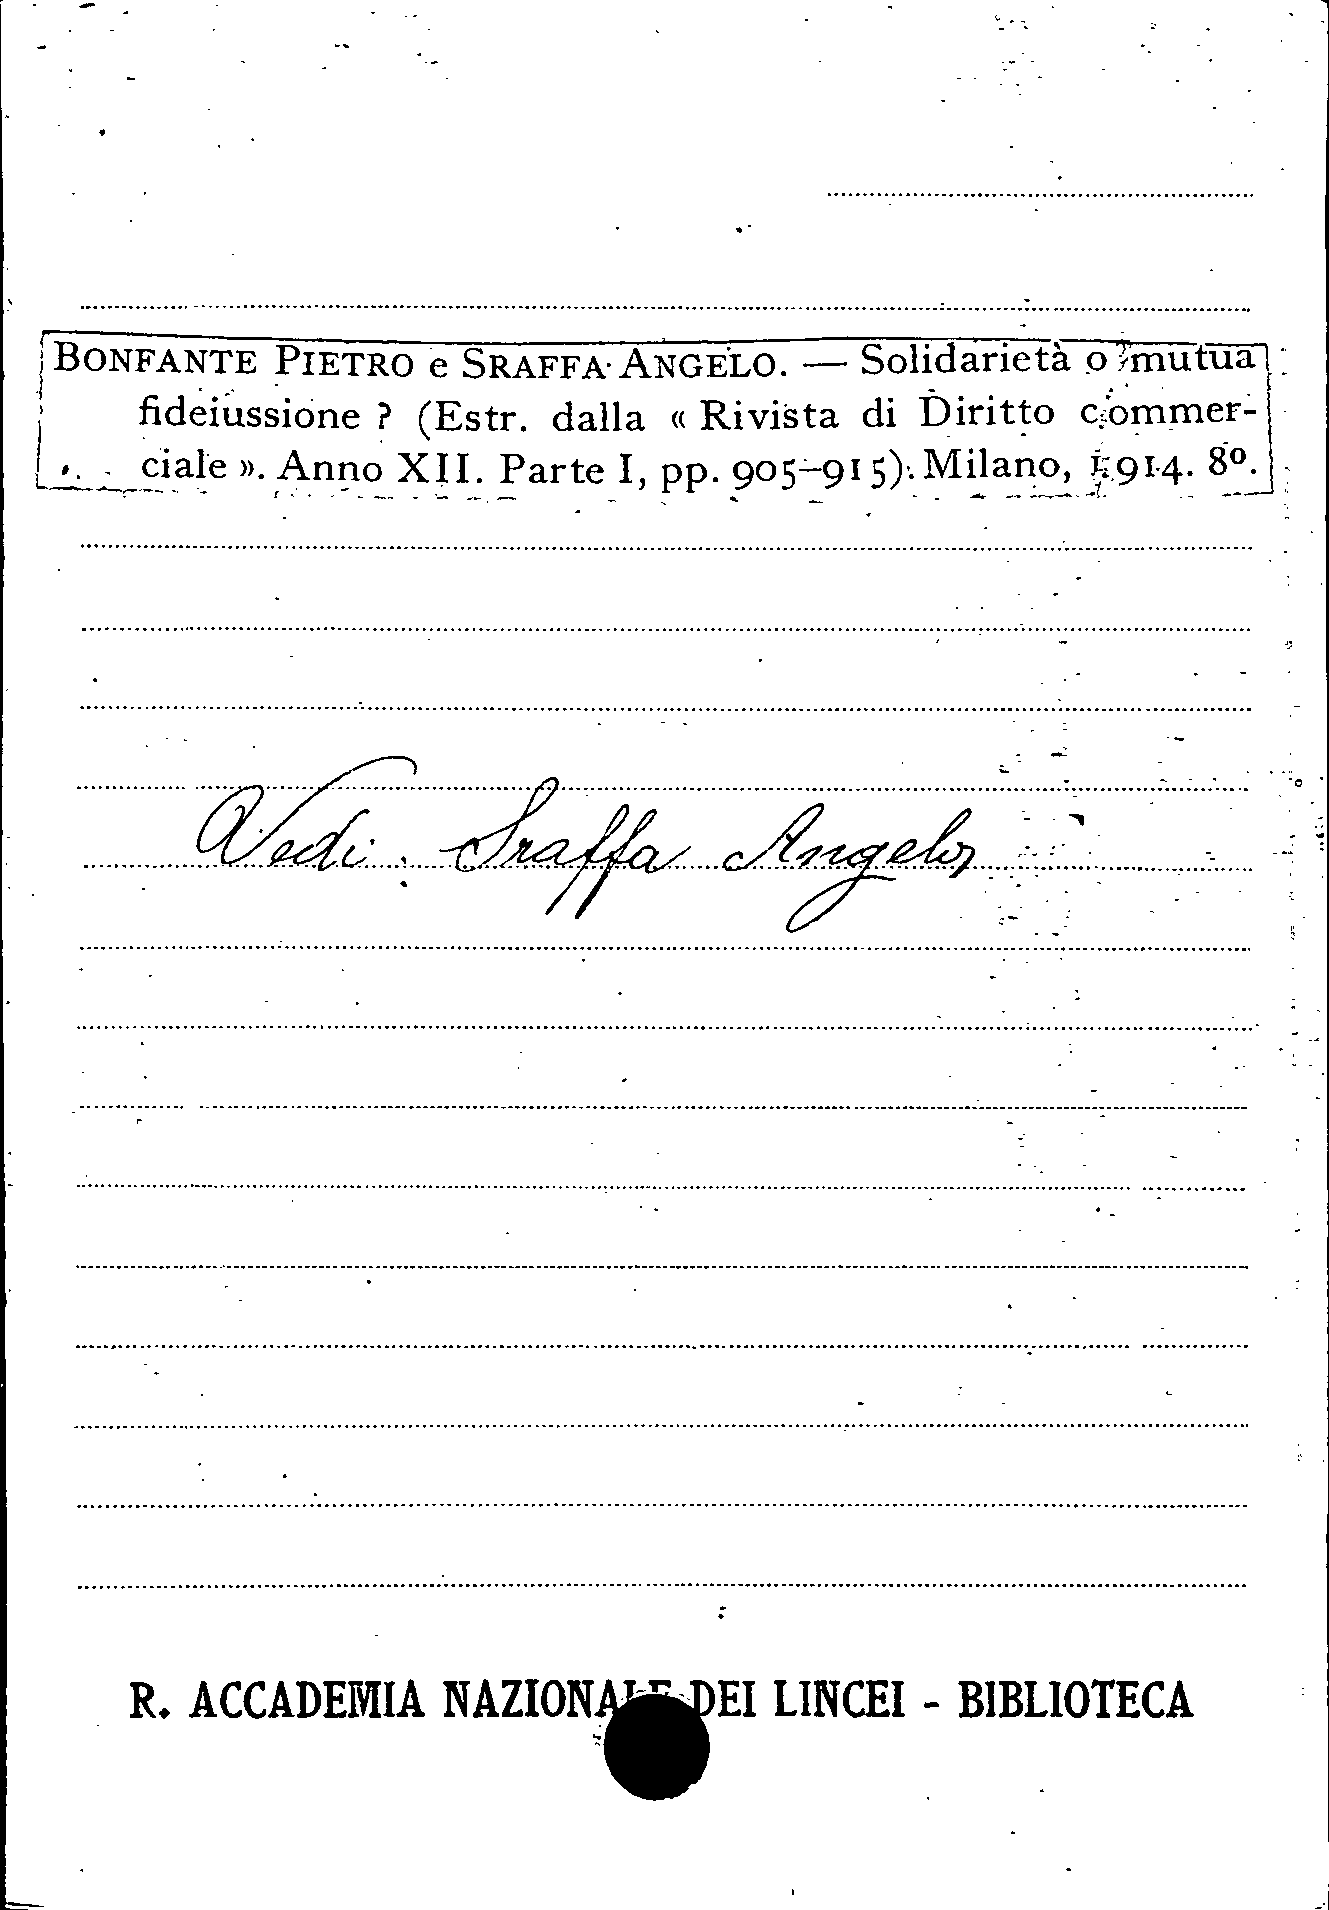 BONFANTE PIETRO e SRAFFA ANGELO. — Solidarietà o mutua
fideiussione ? (Estr. dalla « Rivista di Diritto commer-
ciale ». Anno XII. Parte I, pp. 905-915). Milano, 1914. 8º.
Vedi. Sraffa Angelo
R. ACCADEMIA NAZIONALE DEI LINCEI - BIBLIOTECA